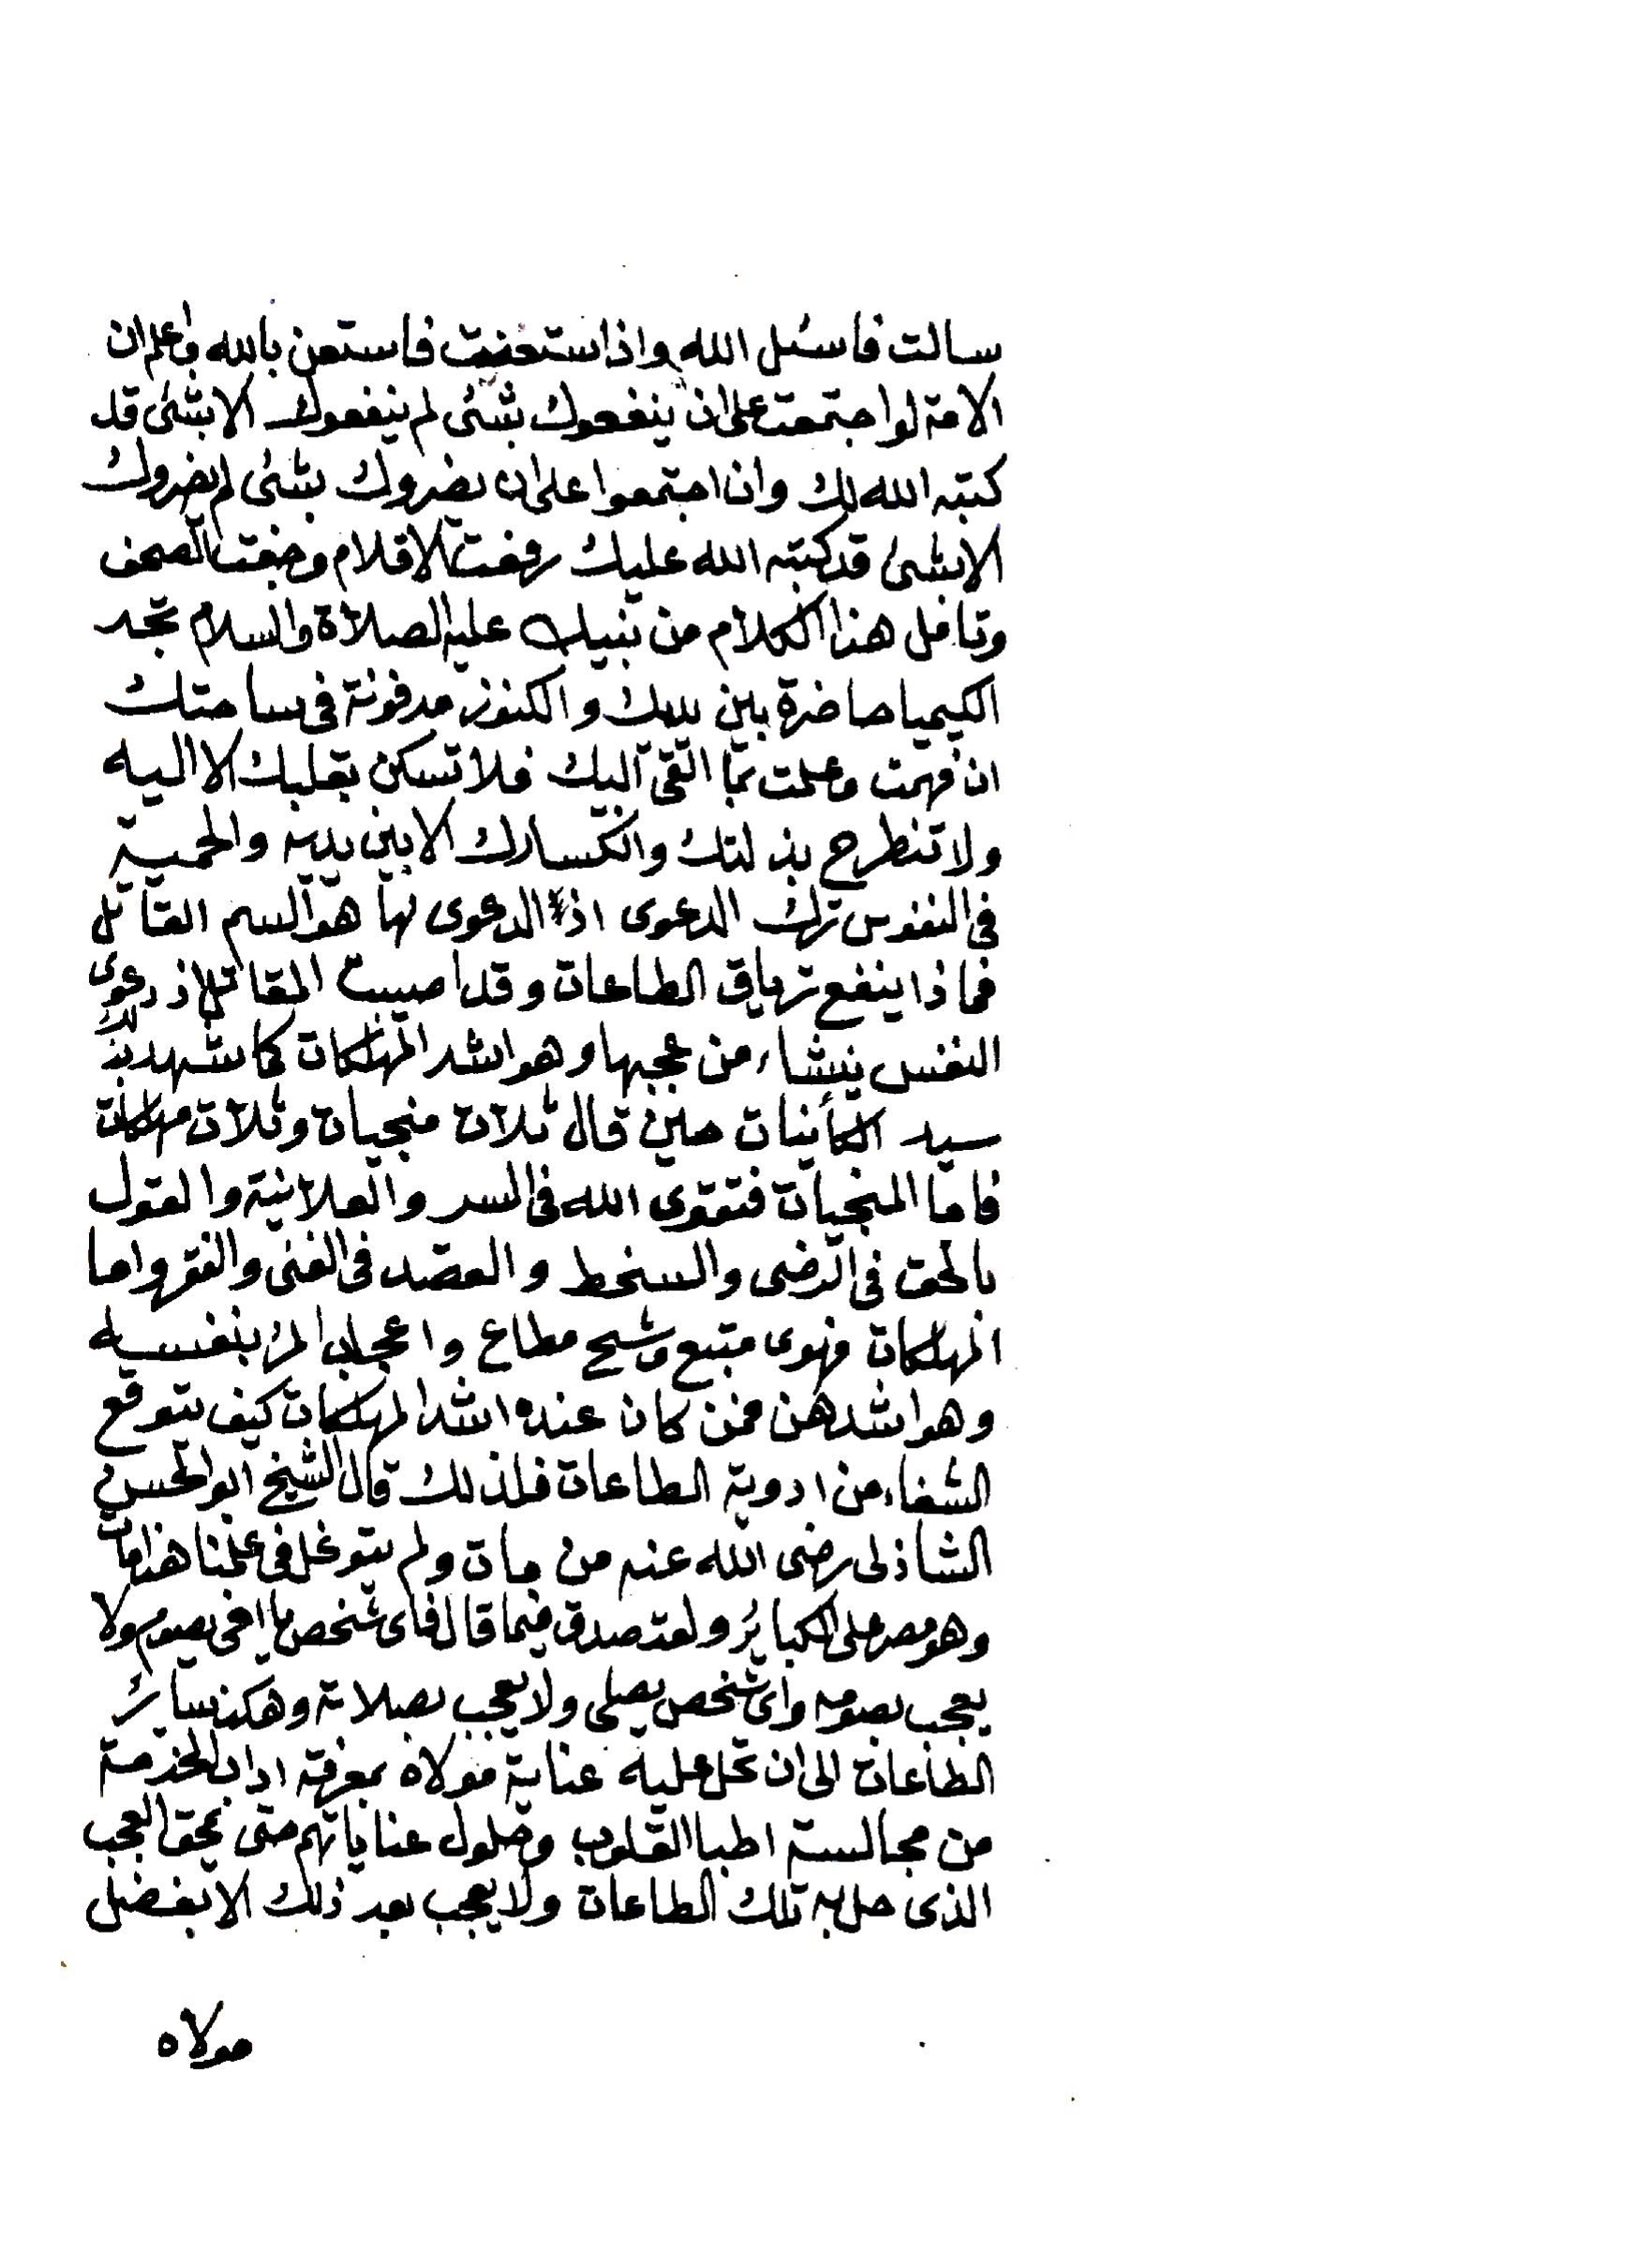 سالت فاسئل الله واذا ستعنت فاستعن بالله واعلم ان
الامة لو اجتمعت على ان ينفعوك بشئ لم ينفعوك الا بشئ قد
كتبه الله لك وان اجتمعوا على ان يضروك بشئ لم يضروك
الا بشئ قد كتبه الله عليك رفعت الاقلام وجفت الصحف
وتامل هذا الكلام من نبيك عليه الصلاة والسلام تجد
الكيميا حاضرة بين يديك والكنوز مدفونة فى ساحتك
ان فهمت وعملت بما القى اليك فلا تسكن بقلبك الا اليه
ولا تنطرح بذلتك وانكسارك الا بين يديه والحمية
فى النفوس ترك الدعوى اذ الدعوى لها هو السم القاتل
فماذا ينفع ترياق الطاعات وقد اصيبت المقاتل اذ دعوى
النفس ينشاء من عجبها وهو اشد المهلكات كما شهد بذلك
سيد الكائنات حين قال ثلاث منجيات وثلاث مهلكات
فاما المنجيات فتقوى الله فى السر والعلانية والقول
بالحق فى الرضى والسخط والقصد فى الغنى والفقر واما
المهلكات فهوى متبع وشح مطاع واعجاب المرء بنفسه
وهو اشدهن فمن كان عنده اشد المهلكات كيف يتوقع
الشفاء من ادوية الطاعات فلذلك قال الشيخ ابو الحسن
الشاذلى رضى الله عنه من مات ولم يتوغل فى علمنا هذا مات
وهو مصر على الكبائر ولقد صدق فيما قال فاى شخص يا اخى يصوم ولا
يعجب بصومه واى شخص يصلى ولا يعجب بصلاته وهكذ سائر
الطاعات الى ان تحل عليه عناية مولاه بمعرفة اداب الخدمة
من مجالسة اطبا القلوب وحلول عناياتهم حتى يمحق العجب
الذى حل به تلك الطاعات ولا يعجب بعد ذلك الا بفضل
مولاه